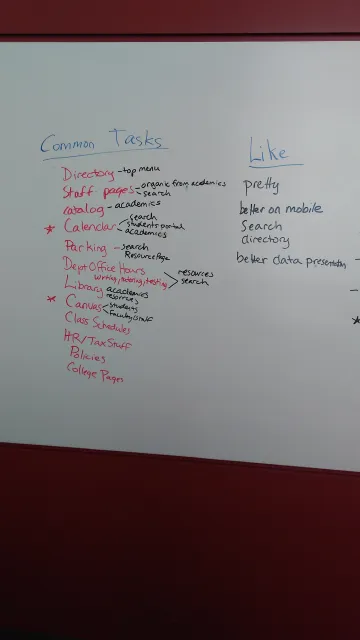 Common Tasks
Directory - top menu
Staff pages - organic from academics
- search
catalog - academics
* Calendar - search
students portal
academics
Parking - search
Resource Page
Dept Office Hours
writing, tutoring, testing
resources
search
Library academics
resources
* Canvas - students
Faculty & Staff
Class Schedules
HR/Tax Stuff
Policies
College Pages
Like
pretty
better on mobile
Search
directory
better data presentation -
-
*